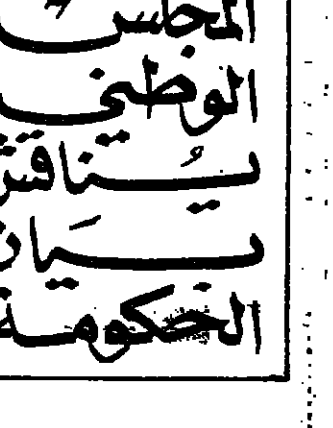 المجلس
الوطني
يُناقش
بيان
الحكومة